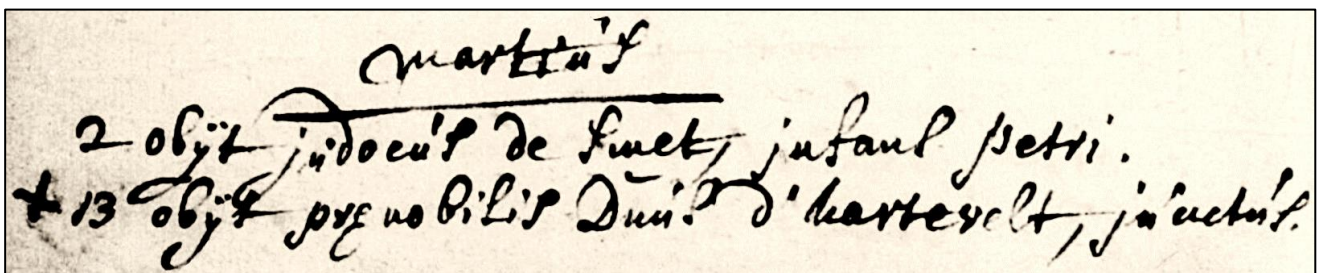 Martiús
2 obÿt júdocús de smet, infans petri.
+ 13 obÿt pręnobilis Dnús d'hartevelt, júnctús.